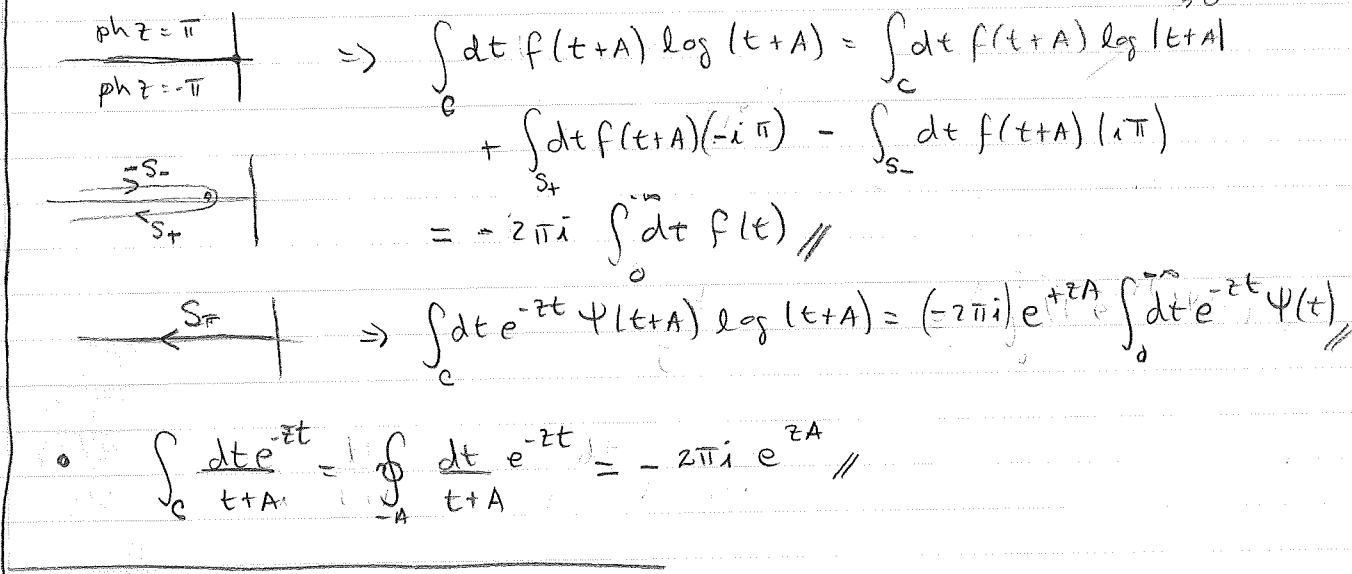 ph z = π
ph z = -π
=> ∫_C dt f(t+A) log (t+A) = ∫_C dt f(t+A) log |t+A|
+ ∫_{S+} dt f(t+A)(-iπ) - ∫_{S-} dt f(t+A) (iπ)
-S-
S+
= -2πi ∫_0^{-∞} dt f(t) //
S_π
=> ∫_C dt e^{-zt} Ψ(t+A) log (t+A) = (-2πi) e^{+zA} ∫_0^{-∞} dt e^{-zt} Ψ(t) //
• ∫_C dt e^{-zt} / t+A = ∮_{-A} dt / t+A e^{-zt} = -2πi e^{zA} //